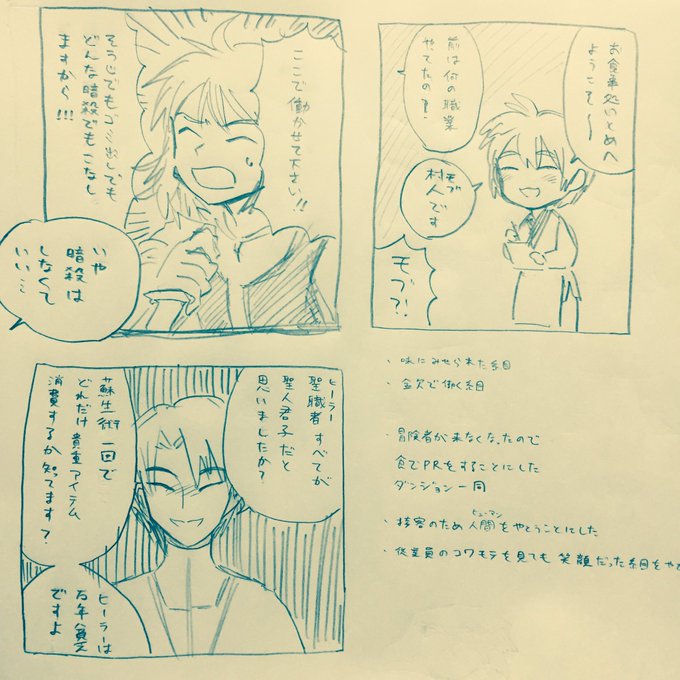 お食事処いとめへ
ようこそ〜
前は何の職業
やてたの?
モブ
村人です
モブ?!
ここで働かせて下さい!!
そうじでもゴミ出しでも
どんな暗殺でもこなし
ますから!!!
いや
暗殺は
しなくて
いい…
ヒーラー
聖職者すべてが
聖人君子だと
思いましたか?
蘇生術一回で
どれだけ貴重アイテム
消費するか知ってます?
ヒーラーは
万年貧乏
ですよ
・味にみせられた糸目
・金欠で働く糸目
・冒険者が来なくなったので
食でPRをすることにした
ダンジョン一同
ヒューマン
・接客のため人間をやとうことにした
・従業員のコワモテを見ても笑顔だった糸目をやと